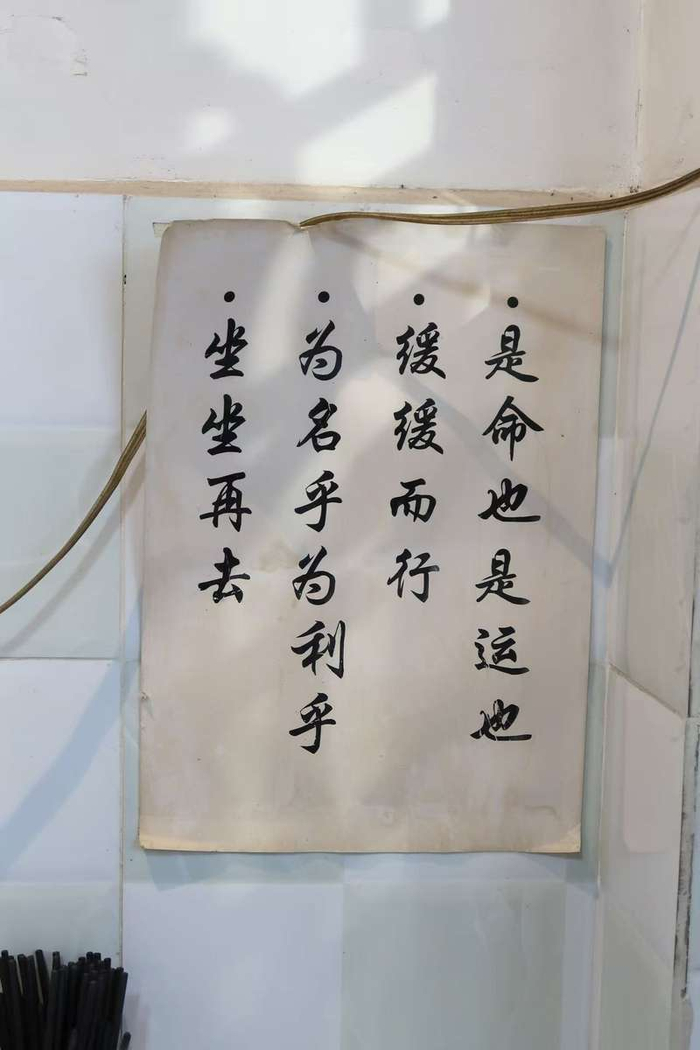 •是命也是运也
•缓缓而行
•为名乎为利乎
•坐坐再去